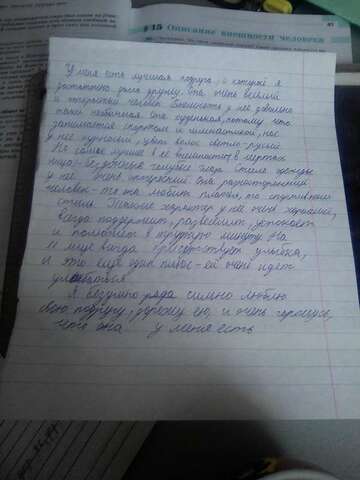 § 15 Описание внешности человека
У меня есть лучшая подруга, с которой я
достаточно рано дружу. Она очень весёлый
и открытый человек. Внешность у неё довольно
таки необычная. Она худенькая, потому что
занимается спортом и гимнастикой, нос
у неё курносый, цвет волос светло-русый.
Но самое лучшее в её внешности, в чертах
лица - бездонные голубые глаза. Стиль одежды
у неё очень интересный. Она разносторонний
человек - то она любит платья, то спортивный
стиль. Также характер у неё очень хороший,
всегда поддержит, развеселит, успокоит
и поможет в трудную минуту. На
лице всегда присутствует улыбка,
и это ещё один плюс - ей очень идёт
улыбаться.
Я безумно рада сильно люблю
свою подругу, дорожу ею, и очень горжусь,
что она у меня есть